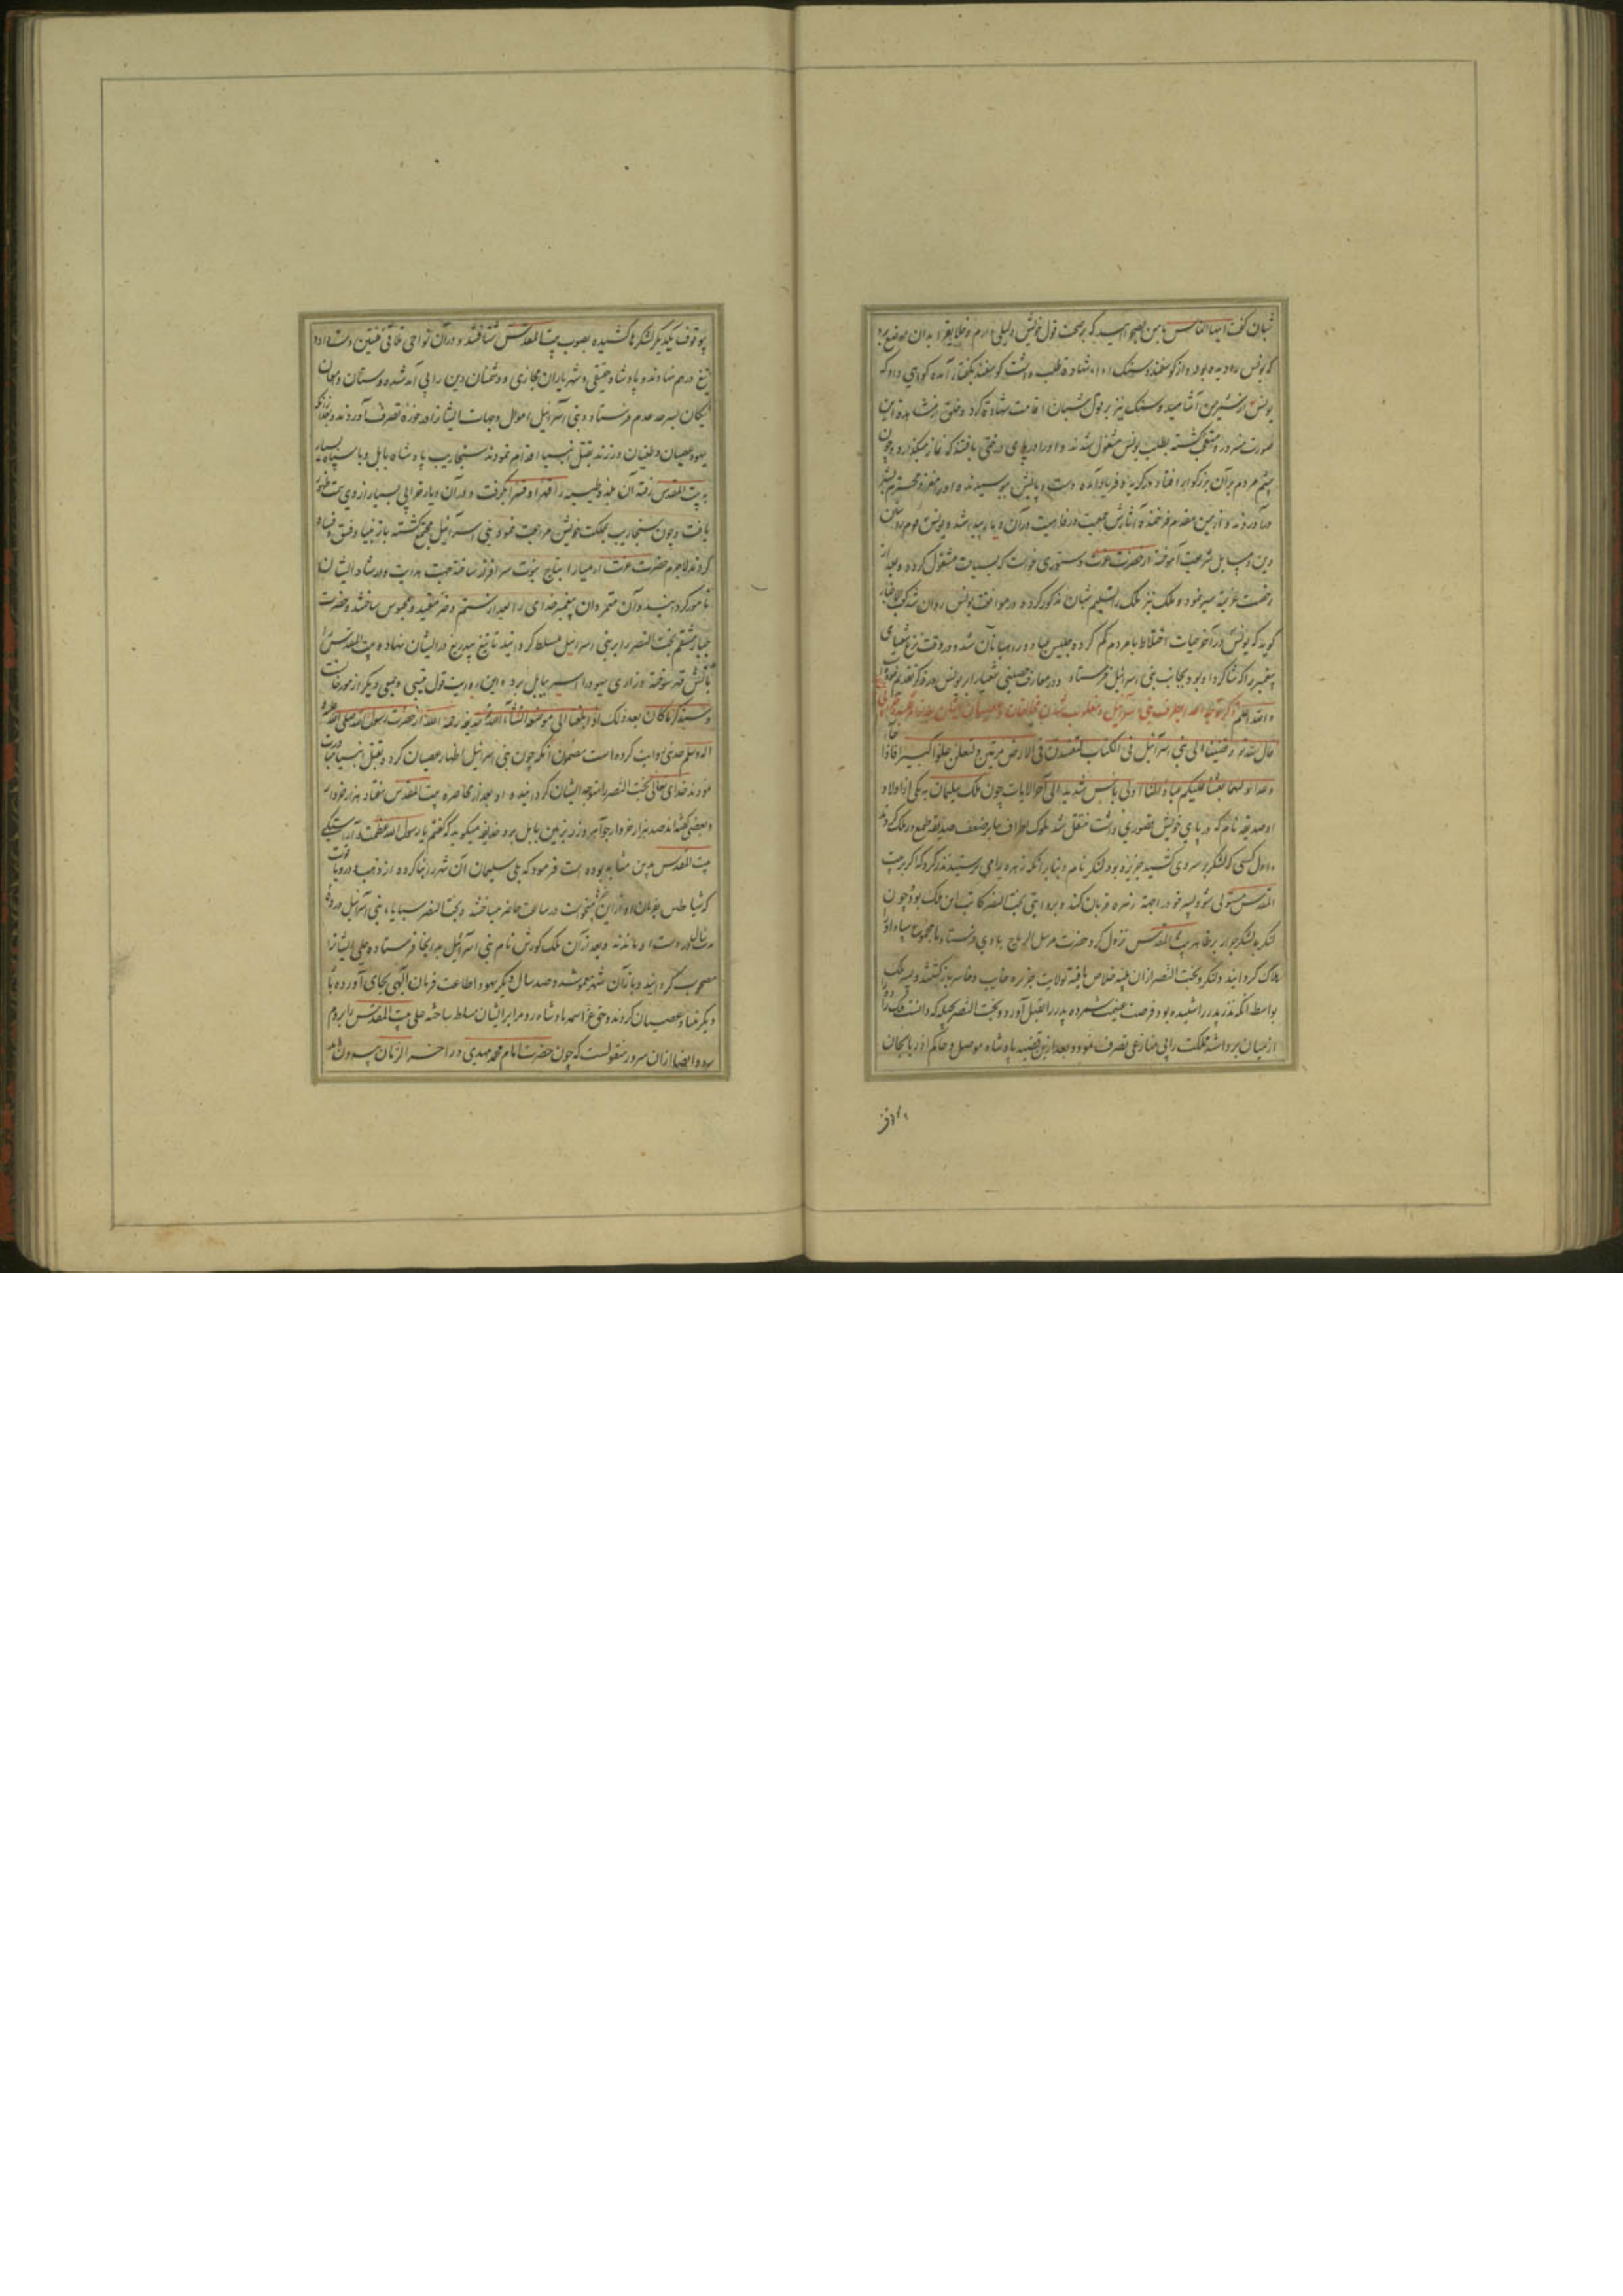 شبان گفت ایها الناس با من بصحرا آیید که بر صحت قول خویش دلیلی دارم و خلایق را بدان موضع برد
که یونس را دیده بود و از گوسفند و سنگ ادای شهادة طلب داشت گوسفند بگفتار آمده گواهی داد که
یونس از شیر من آشامید و سنگ نیز بر قول شبان اقامت شهادة کرد و خلق از مشاهده این
صورت متعجب گشته بطلب یونس مشغول شدند و او را در پای درختی یافتند که نماز میگذارد و چون
چشم مردم بر آن بزرگوار افتاد در گریه و فریاد آمده دست و پایش بوسیدند و او را معزز و محترم بشهر
درآوردند و از یمن مقدم فرخنده آثارش جمعیت و رفاهیت در آن دیار پیدا شد و یونس
دین و مسایل شریعت آموخته از حضرت عزت دستوری خواست که بسیاحت مشغول گردد و بعد از
رخصت عزیمة سیر نموده ملک نیز ملک را تسلیم شبان مذکور کرده در موافقت یونس روان شد
گوید که یونس در آخر حیات اختلاط با مردم کم کرده جلیس عباد و رهبانان شد و در وقت نزع شعیای
پیغمبر را که شاگرد او بود بجانب بنی اسرائیل فرستاد و در معارف حصینی شعیا را بر یونس در ذکر تقدیم نموده
و الله اعلم ذکر توجه اعدا بطرف بنی اسرائیل و مغلوب شدن مخالفان
قال الله تعالی و قضینا الی بنی اسرائیل فی الکتاب لتفسدن فی الارض مرتین و لتعلن علوا کبیرا فاذا جاء
وعد اولیهما بعثنا علیکم عبادا لنا اولی باس شدید الی آخر الایات چون ملک سلیمان به یکی از اولاد
او صدیقه نام که در پای خویش قصوری داشت منتقل شد ملوک اطراف بنا بر ضعف صدیقه طمع در ملک کردند
و اول کسی که لشکر بر سر وی کشید جزیره بود لنکر نام و بنابر آنکه زهره را می پرستید نذر کرد که اگر بر بیت
المقدس مستولی شود پسر خود را جهة زهره قربان کند و بروایتی بخت النصر کاتب این ملک بود و چون
لنکر با لشکر جرار بر ظاهر بیت المقدس نزول کرد حضرت مرسل الریاح بادی فرستاد تا مجموع سپاه او را
هلاک گردانید و لنکر و بخت النصر از آن بلیه خلاص یافته بولایت جزیره خایب و خاسر بازگشتند و پسر ملک
بواسطه آنکه نذر پدر را شنیده بود فرصت غنیمت شمرده پدر را بقتل آورد و بخت النصر بحیله که دانست ملک زاده را
از میان برداشته مملکت را بی منازعی تصرف نمود و بعد ازین قضیه پادشاه موصل و حاکم آذربایجان
بی وقوف یکدیگر لشکرها کشیده بصوب بیت المقدس شتافتند و در آن نواحی تلاقی فئتین دست داده
تیغ در هم نهادند و پادشاه حقیقی و شهریاران مجازی و دشمنان دین را بی آمد شد دوستان و مهان
یگان بسرحد عدم فرستاد و بنی اسرائیل اموال و جهات ایشانرا در حوزه تصرف آوردند و بعد از آنکه
یهود عصیان و طغیان ورزیدند بقتل انبیا اقدام نمودند سنجاریب پادشاه بابل با سپاه بسیار
به بیت المقدس رفته آن بلده طیبه را قهرا و قسرا بگرفت و در آن دیار خرابی بسیار از وی سمت ظهور
یافت و چون سنجاریب بمملکت خویش مراجعت نمود بنی اسرائیل مجتمع گشته باز بنیاد فسق و فساد
کردند لاجرم حضرت عزت ارمیا را بتاج نبوت سرافراز ساخته جهت هدایت و ارشاد ایشان
نامور گردانید و آن متمردان پیغمبر خدای را بعد از شتم و ضرب مقید و محبوس ساختند و حضرت
جبار منتقم بخت النصر را بر بنی اسرائیل مسلط گردانید تا تیغ بیدریغ در ایشان نهاده بیت المقدس را
بآتش قهر سوخته و ذراری یهود را اسیر ببابل برد و این روایت قول قتیبی و جمعی دیگر از مورخان است
و سیذکر ما کان بعد ذلک اذا بلغنا الی موضعه انشاء الله تعالی حذیفه رحمه الله از حضرت رسول الله صلی الله علیه و
اله و سلم حدیثی روایت کرده است مضمون آنکه چون بنی اسرائیل اظهار عصیان کرده و بقتل انبیا مبادرت
نمودند خدای تعالی بخت النصر را متوجه ایشان گردانید و او بعد از محاصره بیت المقدس هفتاد هزار خروار
و بعضی گفته اند صد هزار خروار جواهر و زر و زیور ببابل برد و حذیفه میگوید که گفتم یا رسول الله عظمت و آراستگی
بیت المقدس بدین مثابه بوده است فرمود که بلی سلیمان آن شهر را بنا کرده از ذهب و در و یاقوت
که شیاطین بفرمان او هر چه میخواست در ساعت حاضر میساختند و بخت النصر سبایا بنی اسرائیل
سال در دست او ماندند و بعد از آن ملک کورش نام بنی اسرائیل بدانجا فرستاده حلی ایشانرا
مصحوب گردانید و باز آن شهر معمور شده و صد سال دیگر یهود اطاعت فرمان الهی بجای آورده با
دیگر فساد و عصیان کردند و حق عز اسمه پادشاه روم را بر ایشان مسلط ساخته حلی بیت المقدس را بروم
برد و ایضا از آن سرور منقولست که چون حضرت امام محمد مهدی در آخر الزمان بیرون آید